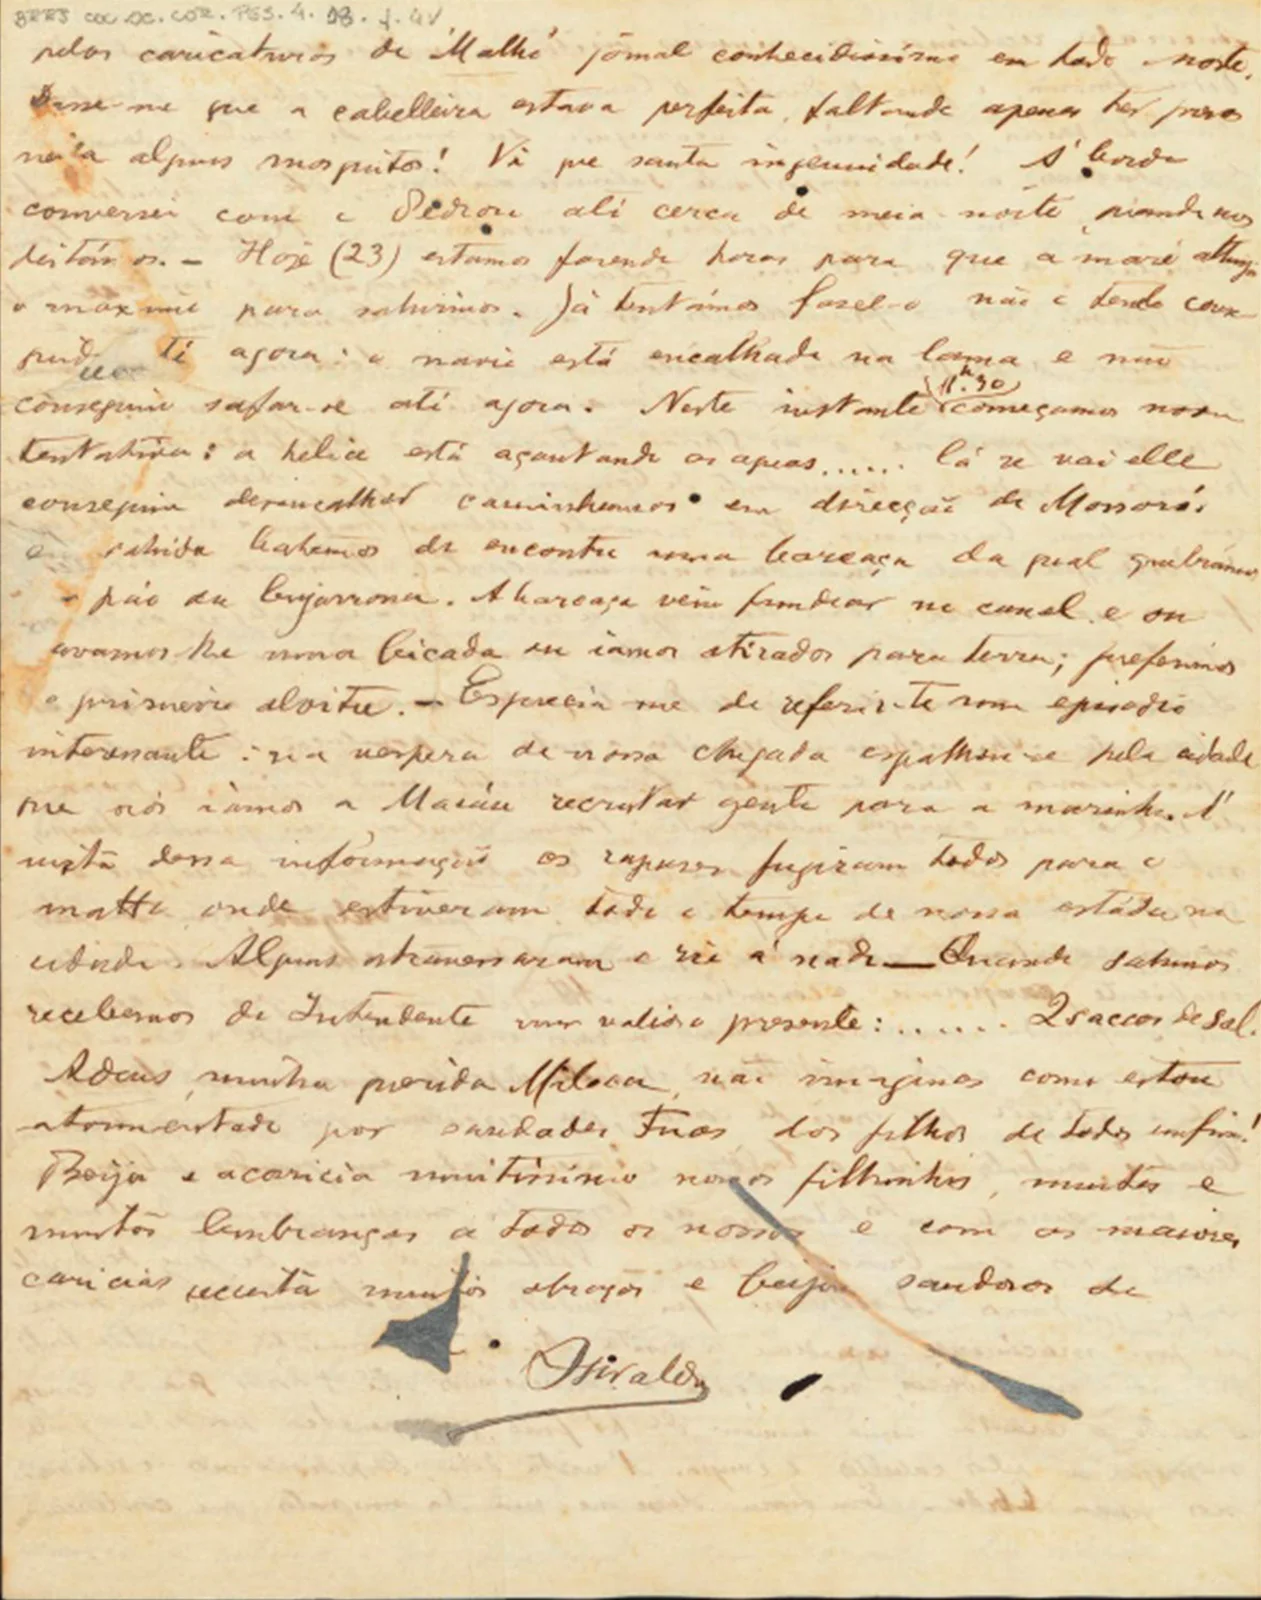 pelas caricaturas do "Malho" jornal conhecidissimo em todo norte.
Disse-me que a cabelleira estava perfeita, faltando apenas ter preso
nella alguns mosquitos! Vê que santa ingenuidade! A' bordo
conversei com o Pedrou até cerca de meia noite, quando nos
deitámos. - Hoje (23) estamos fasendo horas para que a maré attinja
o maximo para sahirmos. Já tentámos fasel-o não o tendo conse
guido té agora: o navio está encalhado na lama e não
conseguiu safar-se até agora. Neste instante (11h.30) começamos nova
tentativa: a helice está açoutando as aguas...... lá se vai elle
conseguiu desencalhar caminhemos em direcção de Mossoró.
sahida batemos de encontro uma barcaça da qual quebrámos
o páo da bujarrona. A barcaça veiu fundear no canal e ou
davamos-lhe uma bicada ou iamos atirados para terra; preferimos
o primeiro alvitre. - Esquecia-me de referir-te um episodio
interessante: na vespera de nossa chegada espalhou-se pela cidade
que nós iamos a Macáu recrutar gente para a marinha. A'
vista dessa informação os rapases fugiram todos para o
matto onde estiveram todo o tempo de nossa estádia na
cidade. Alguns atravessaram o rio á nado — Quando sahimos
recebemos do Intendente um valioso presente: ...... 2 saccos de sal.
Adeus, minha querida Miloca, não imaginas como estou
atormentado por saudades tuas dos filhos de todos emfim!
Beija e acaricia muitissimo nossos filhinhos, muitas e
muitas lembranças a todos os nossos e com as maiores
caricias acceita muitos abraços e beijos saudosos do
Osvaldo